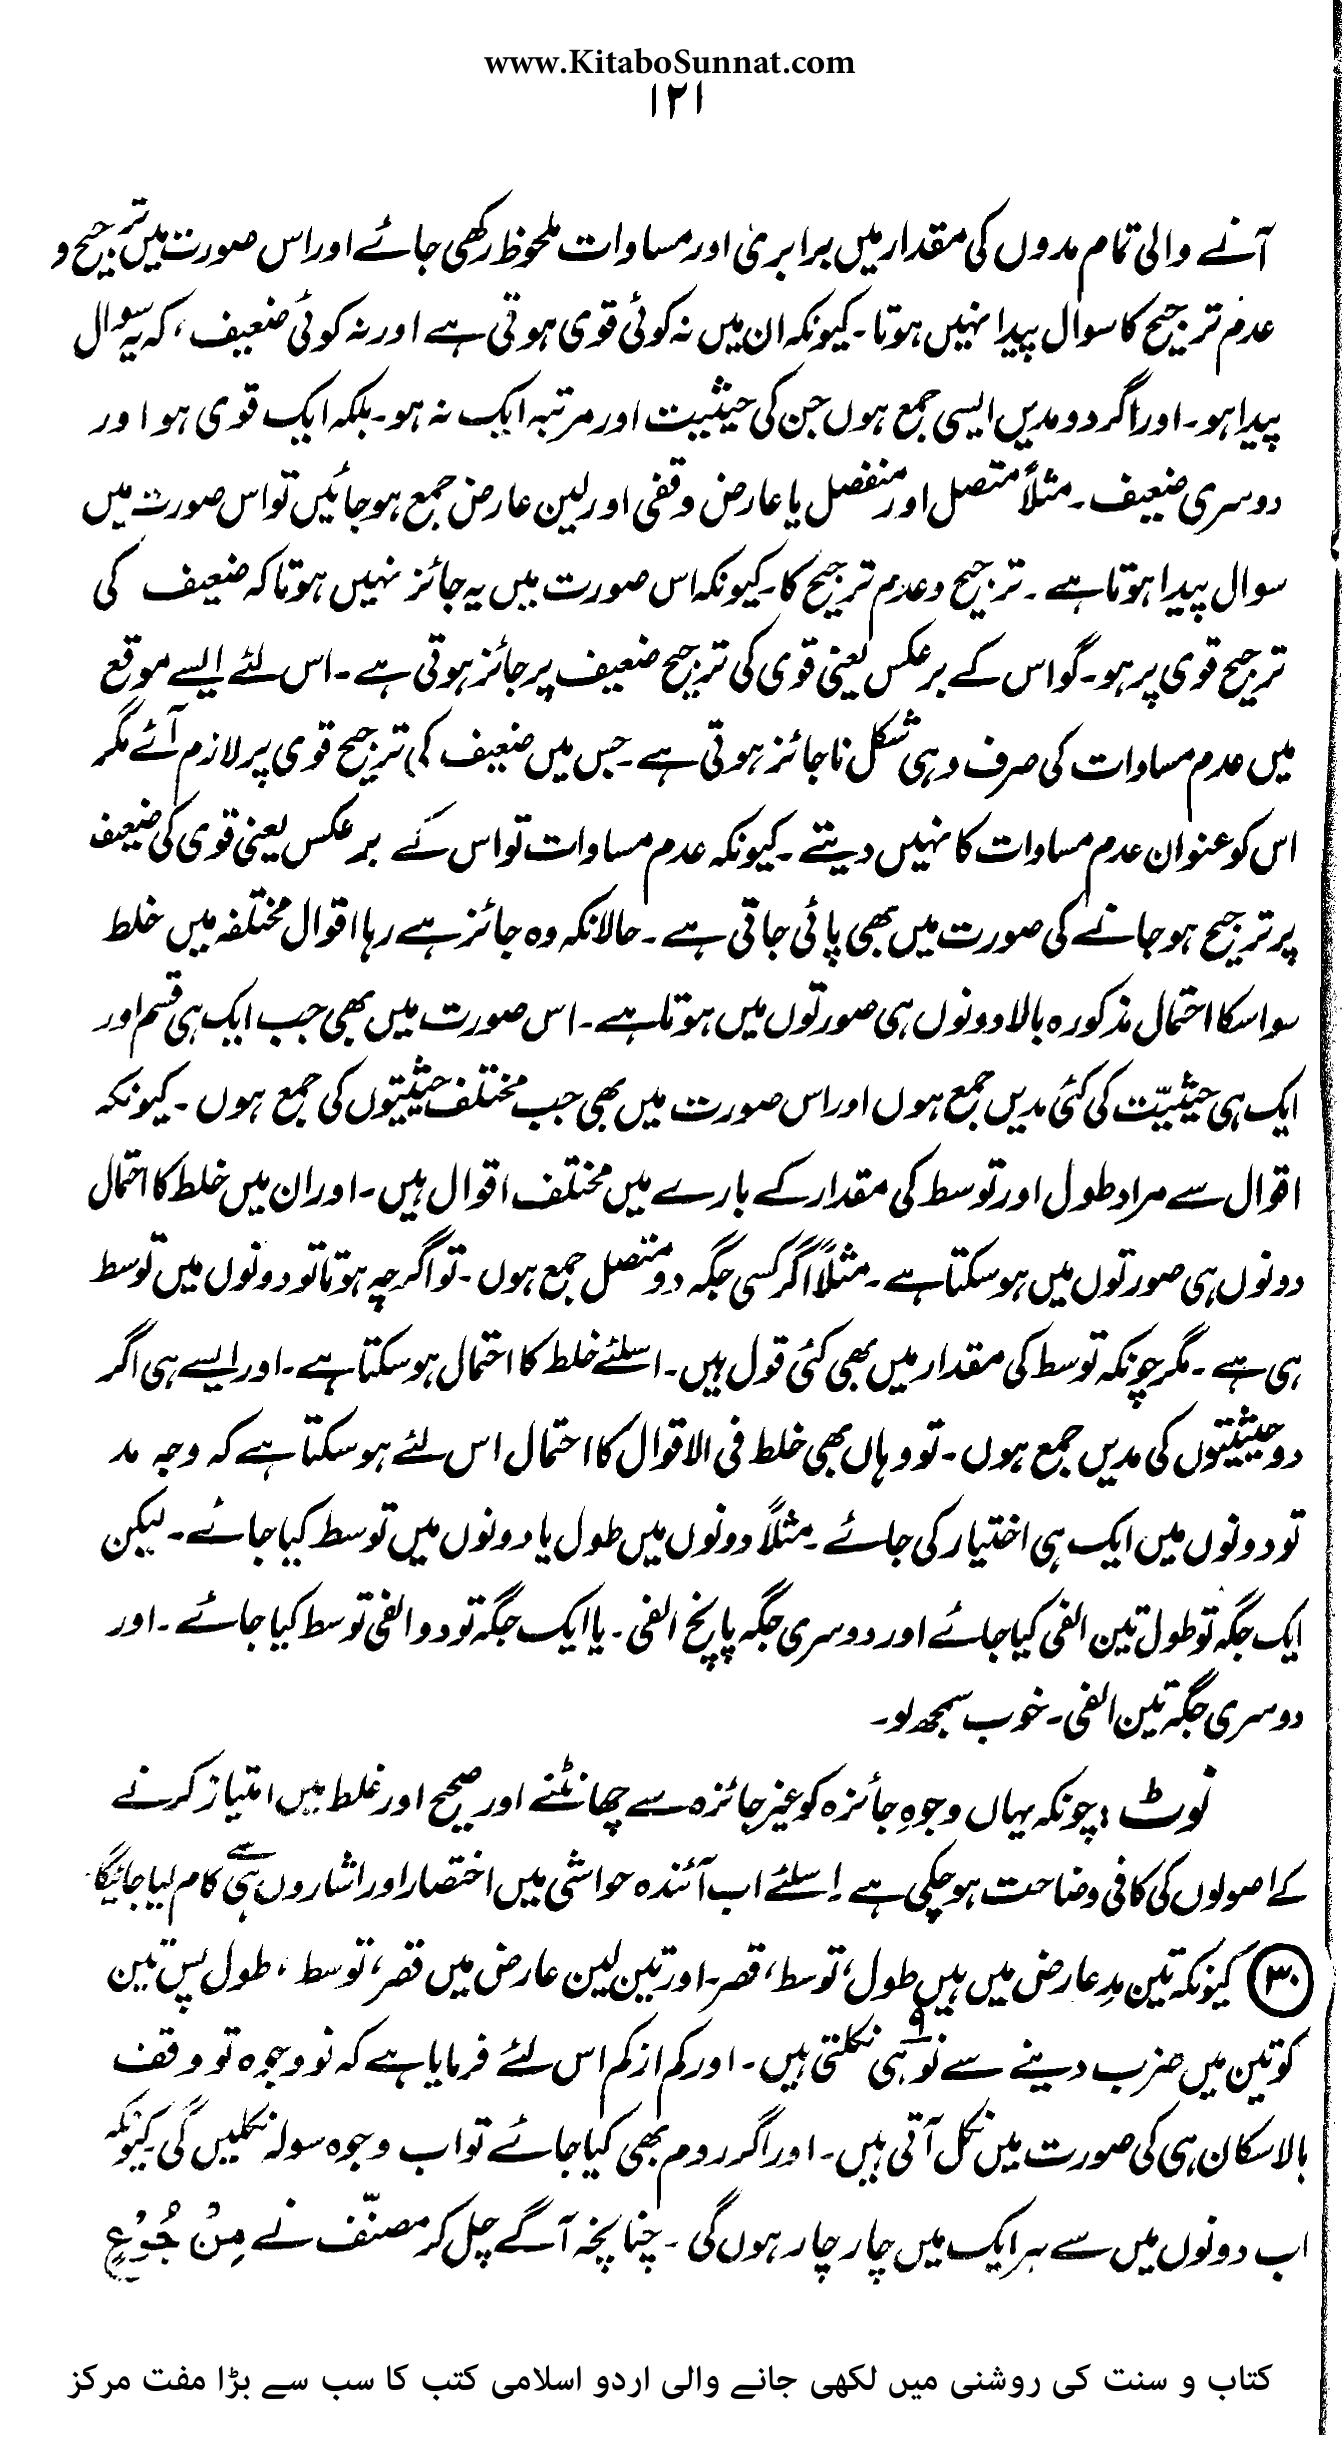 www.KitaboSunnat.com
۱۲۱
آنے والی تمام مدوں کی مقدار میں برابری اور مساوات ملحوظ رکھی جائے اور اس صورت میں ترجیح و
عدم ترجیح کا سوال پیدا نہیں ہوتا۔ کیونکہ ان میں نہ کوئی قوی ہوتی ہے اور نہ کوئی ضعیف، کہ یہ سوال
پیدا ہو۔ اور اگر دو مدیں ایسی جمع ہوں جن کی حیثیت اور مرتبہ ایک نہ ہو۔ بلکہ ایک قوی ہو اور
دوسری ضعیف۔ مثلاً متصل اور منفصل یا عارض وقفی اور لین عارض جمع ہو جائیں تو اس صورت میں
سوال پیدا ہوتا ہے۔ ترجیح و عدم ترجیح کا۔ کیونکہ اس صورت میں یہ جائز نہیں ہوتا کہ ضعیف کی
ترجیح قوی پر ہو۔ گو اس کے برعکس یعنی قوی کی ترجیح ضعیف پر جائز ہوتی ہے۔ اس لئے ایسے موقع
میں عدم مساوات کی صرف وہی شکل ناجائز ہوتی ہے۔ جس میں ضعیف کی ترجیح قوی پر لازم آئے مگر
اس کو عنوان عدم مساوات کا نہیں دیتے۔ کیونکہ عدم مساوات تو اس کے برعکس یعنی قوی کی ضعیف
پر ترجیح ہو جانے کی صورت میں بھی پائی جاتی ہے۔ حالانکہ وہ جائز ہے رہا اقوال مختلفہ میں خلط
سو اسکا احتمال مذکورہ بالا دونوں ہی صورتوں میں ہوتا ہے۔ اس صورت میں بھی جب ایک ہی قسم اور
ایک ہی حیثیّت کی کئی مدیں جمع ہوں اور اس صورت میں بھی جب مختلف حیثیتوں کی جمع ہوں۔ کیونکہ
اقوال سے مراد طول اور توسط کی مقدار کے بارے میں مختلف اقوال ہیں۔ اور ان میں خلط کا احتمال
دونوں ہی صورتوں میں ہو سکتا ہے۔ مثلاً اگر کسی جگہ دو متصل جمع ہوں۔ تو اگرچہ ہوتا تو دونوں میں توسط
ہی ہے۔ مگر چونکہ توسط کی مقدار میں بھی کئی قول ہیں۔ اسلئے خلط کا احتمال ہو سکتا ہے۔ اور ایسے ہی اگر
دو حیثیتوں کی مدیں جمع ہوں۔ تو وہاں بھی خلط فی الاقوال کا احتمال اس لئے ہو سکتا ہے کہ وجہ مد
تو دونوں میں ایک ہی اختیار کی جائے۔ مثلاً دونوں میں طول یا دونوں میں توسط کیا جائے۔ لیکن
ایک جگہ تو طول تین الفی کیا جائے اور دوسری جگہ پانچ الفی۔ یا ایک جگہ تو دو الفی توسط کیا جائے۔ اور
دوسری جگہ تین الفی۔ خوب سمجھ لو۔
نوٹ: چونکہ یہاں وجوہِ جائزہ کو غیر جائزہ سے چھانٹنے اور صحیح اور غلط میں امتیاز کرنے
کے اصولوں کی کافی وضاحت ہو چکی ہے اسلئے اب آئندہ حواشی میں اختصار اور اشاروں سے ہی کام لیا جائیگا۔
۳۰ کیونکہ تین مدِ عارض میں ہیں طول، توسط، قصر۔ اور تین لین عارض میں قصر، توسط، طول پس تین
کو تین میں ضرب دینے سے نو ۹ ہی نکلتی ہیں۔ اور کم از کم اس لئے فرمایا ہے کہ نو وجوہ تو وقف
بالاسکان ہی کی صورت میں نکل آتی ہیں۔ اور اگر روم بھی کیا جائے تو اب وجوہ سولہ نکلیں گی۔ کیونکہ
اب دونوں میں سے ہر ایک میں چار چار ہوں گی۔ چنانچہ آگے چل کر مصنّف نے مِنْ جُوْعٍ
کتاب و سنت کی روشنی میں لکھی جانے والی اردو اسلامی کتب کا سب سے بڑا مفت مرکز